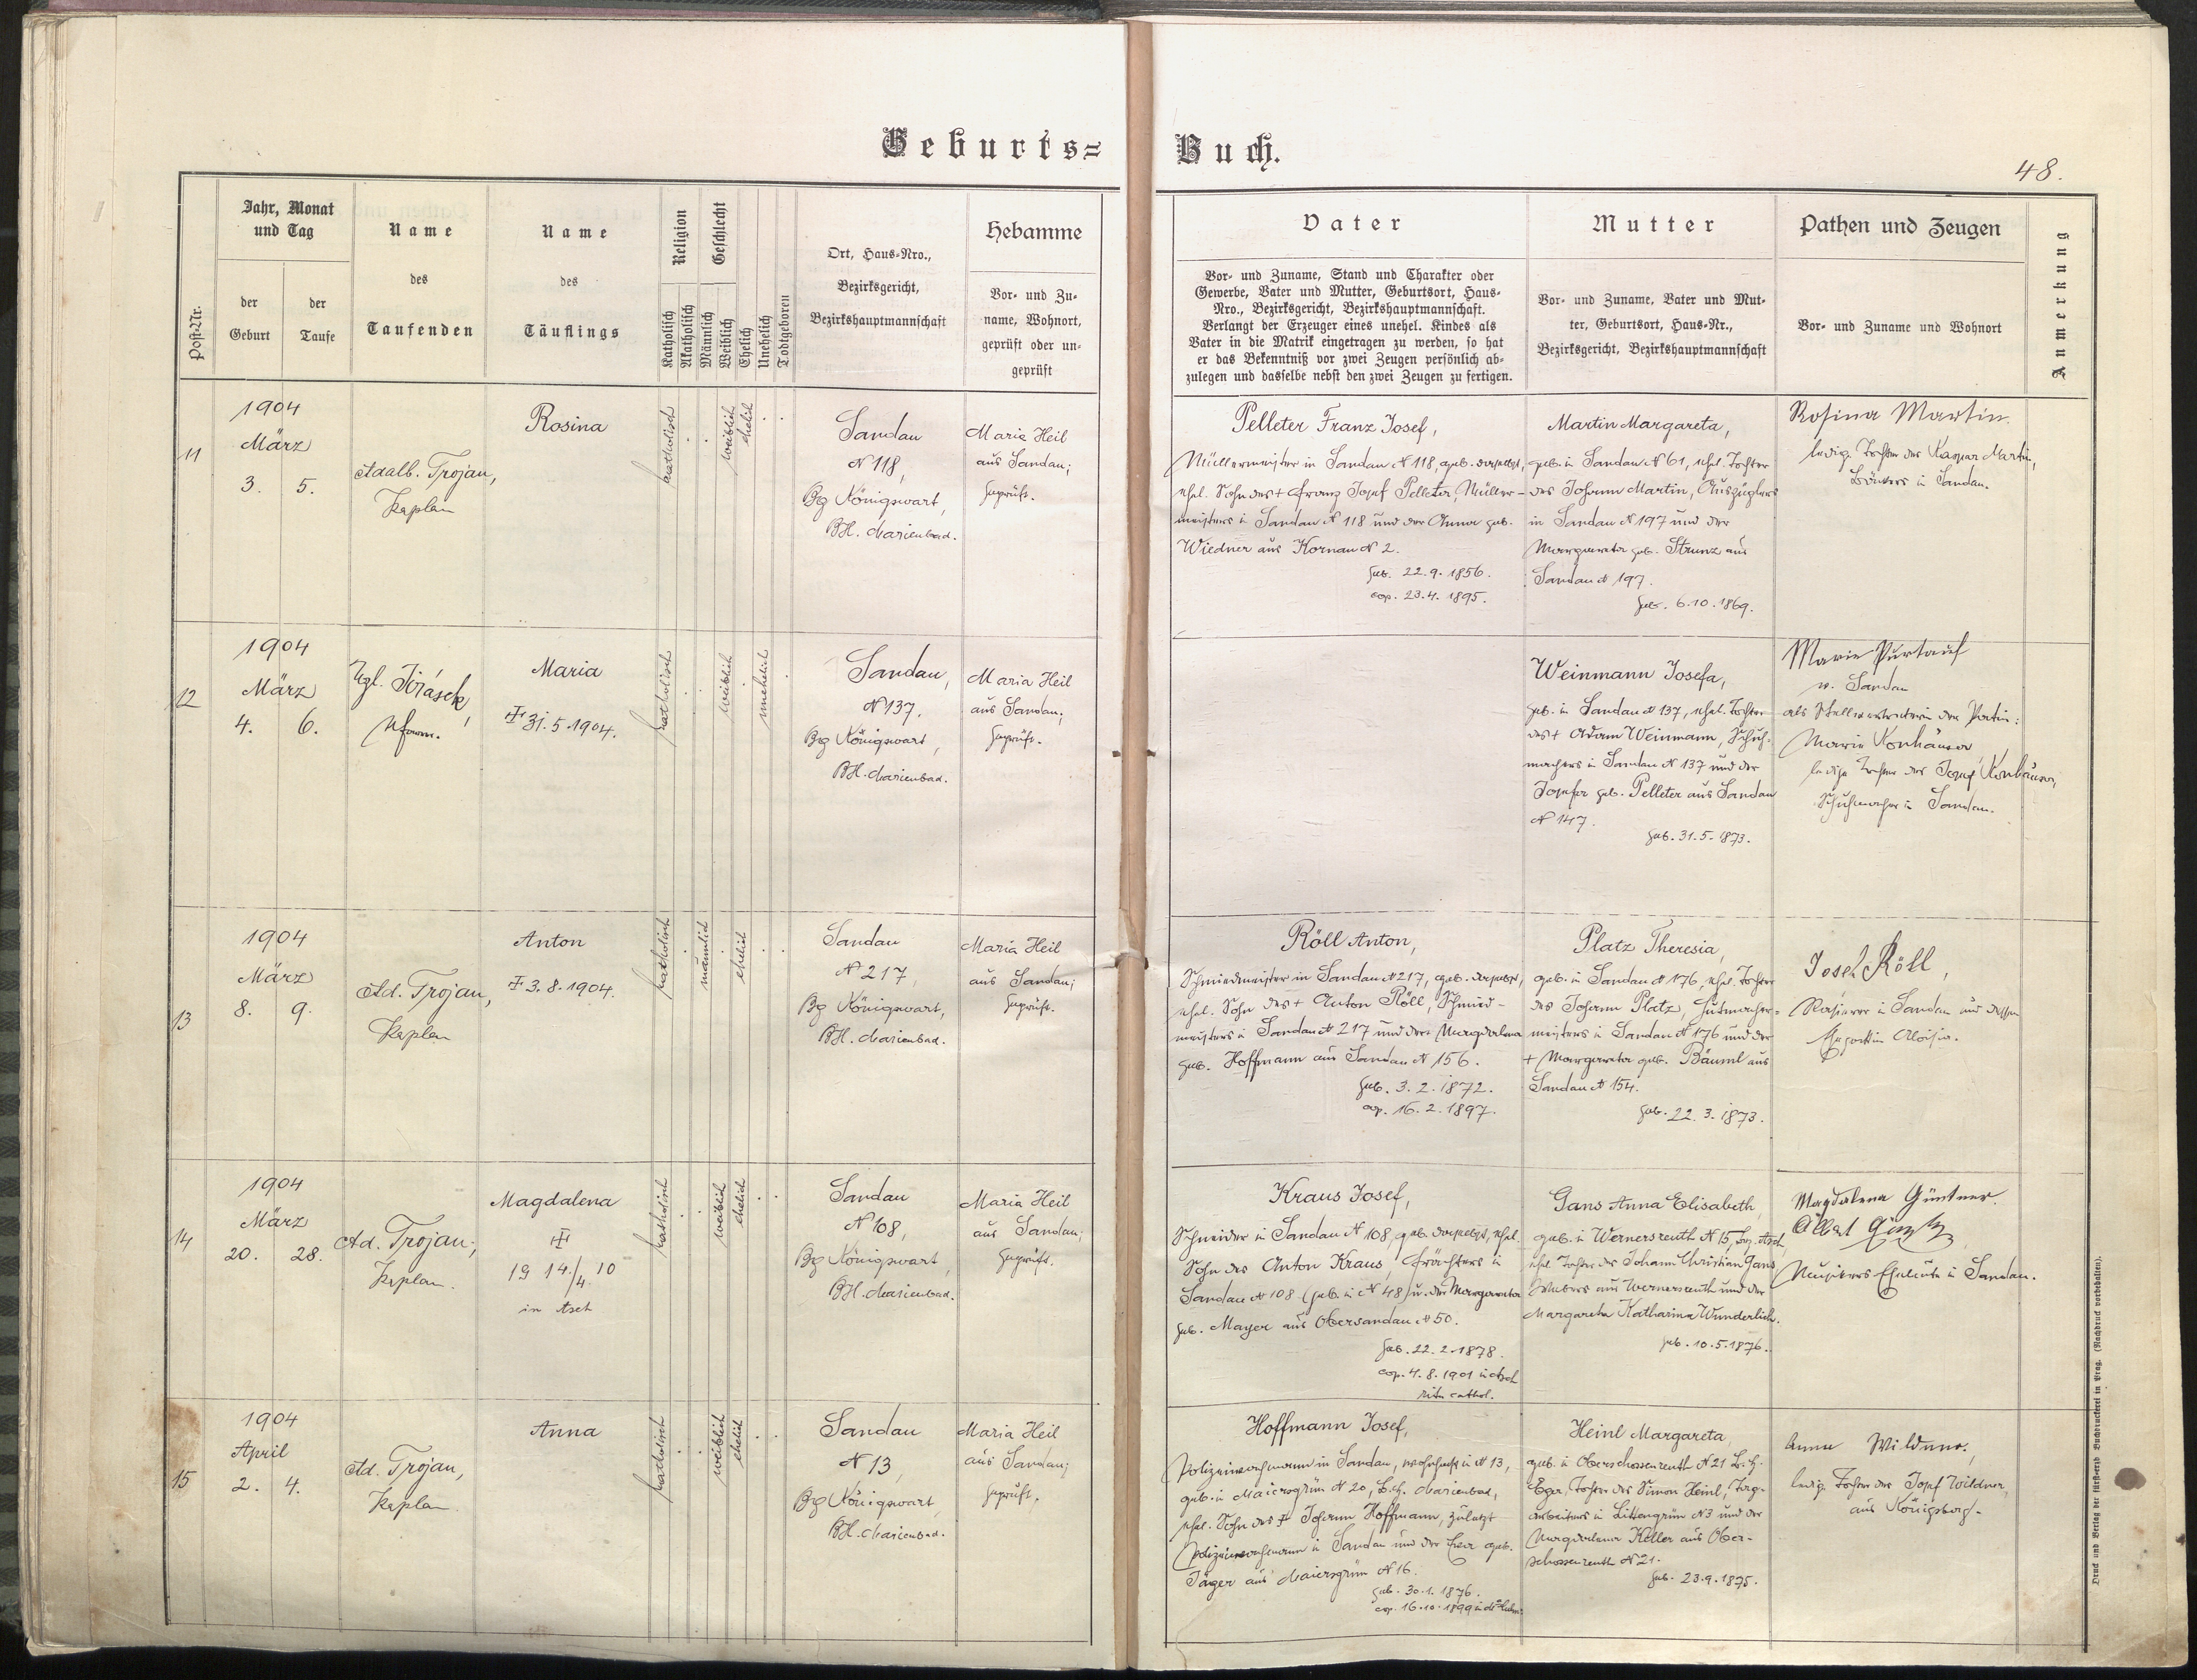 Geburts=
Buch.
48.
Post-Nr.
Jahr, Monat
und Tag
der
Geburt
der
Taufe
Name
des
Taufenden
Name
des
Täuflings
Religion
Katholisch
Akatholisch
Geschlecht
Männlich
Weiblich
Ehelich
Unehelich
Todtgeboren
Ort, Haus-Nro.,
Bezirksgericht,
Bezirkshauptmannschaft
Hebamme
Vor- und Zu-
name, Wohnort,
geprüft oder un-
geprüft
Vater
Vor- und Zuname, Stand und Charakter oder
Gewerbe, Vater und Mutter, Geburtsort, Haus-
Nro., Bezirksgericht, Bezirkshauptmannschaft.
Verlangt der Erzeuger eines unehel. Kindes als
Vater in die Matrik eingetragen zu werden, so hat
er das Bekenntniß vor zwei Zeugen persönlich ab-
zulegen und dasselbe nebst den zwei Zeugen zu fertigen.
Mutter
Vor- und Zuname, Vater und Mut-
ter, Geburtsort, Haus-Nr.,
Bezirksgericht, Bezirkshauptmannschaft
Pathen und Zeugen
Vor- und Zuname und Wohnort
Anmerkung
11
1904
März
3. 5.
Adalb. Trojan,
Kaplan
Rosina
katholisch
weiblich
ehelich
Sandau
N 118,
Bg Königswart,
BH. Marienbad.
Maria Heil
aus Sandau;
geprüft.
Pelleter Franz Josef,
Müllermeister in Sandau N 118, geb. daselbst,
ehel. Sohn des + Franz Josef Pelleter, Müller-
meisters in Sandau N 118 und der Anna geb.
Wiedner aus Kornau N 2.
geb. 22.9.1856.
cop. 23.4.1895.
Martin Margareta,
geb. in Sandau N 61, ehel. Tochter
des Johann Martin, Auszüglers
in Sandau N 197 und der
Margareta geb. Strunz aus
Sandau N 197.
geb. 6.10.1869.
Rosina Martin.
ledige Tochter des Kaspar Martin,
Bäckers in Sandau.
12
1904
März
4. 6.
Jirásek,
Maria
31.5.1904.
katholisch
weiblich
unehelich
Sandau,
N 137.
Bg Königswart,
BH. Marienbad.
Maria Heil
aus Sandau;
geprüft.
Weinmann Josefa,
geb. in Sandau N 137, ehel. Tochter
des + Adam Weinmann, Schuh-
machers in Sandau N 137 und der
Josefa geb. Pelleter aus Sandau
N 147.
geb. 31.5.1873.
Marie Purkauf
v. Sandau
als Stellvertreterin der Patin:
Marie Konhäuser
ledige Tochter des Josef Konhäuser,
Schuhmacher in Sandau.
13
1904
März
8. 9.
Ad. Trojan,
Kaplan
Anton
3.8.1904.
katholisch
männlich
ehelich
Sandau
N 217,
Bg Königswart,
BH. Marienbad.
Maria Heil
aus Sandau;
geprüft.
Röll Anton,
Schmiedmeister in Sandau N 217, geb. daselbst,
ehel. Sohn des + Anton Röll, Schmied-
meisters in Sandau N 217 und der + Magdalena
geb. Hoffmann aus Sandau N 156.
geb. 3.2.1872.
cop. 16.2.1897.
Platz Theresia,
geb. in Sandau N 176, ehel. Tochter
des Johann Platz, Hutmacher-
meisters in Sandau N 176 und der
+ Margareta geb. Bäuml aus
Sandau N 154.
geb. 22.3.1873.
Josef Röll,
in Sandau und dessen
Aloisia.
14
1904
März
20. 28.
Ad. Trojan,
Kaplan.
Magdalena
19 14./4. 10
in Asch
katholisch
weiblich
ehelich
Sandau
N 108,
Bg Königswart,
BH. Marienbad.
Maria Heil
aus Sandau;
geprüft.
Kraus Josef,
Schneider in Sandau N 108, geb. daselbst, ehel.
Sohn des Anton Kraus, Frächters in
Sandau N 108 (geb. in N 48) u. der Margareta
geb. Mayer aus Obersandau N 50.
geb. 22.2.1878.
cop. 4.8.1901 in Asch
ritu cathol.
Gans Anna Elisabeth,
geb. in Wernersreuth N 15, Bez. Asch,
ehel. Tochter des Johann Christian Gans,
Webers aus Wernersreuth und der
Margareta Katharina Wunderlich.
geb. 10.5.1876.
Magdalena Güntner.
Eheleute in Sandau.
15
1904
April
2. 4.
Ad. Trojan,
Kaplan
Anna
katholisch
weiblich
ehelich
Sandau
N 13,
Bg Königswart,
BH. Marienbad.
Maria Heil
aus Sandau;
geprüft.
Hoffmann Josef,
Polizeiwachmann in Sandau, wohnhaft in N 13,
geb. in Maiersgrün N 20, B.H. Marienbad,
ehel. Sohn des + Johann Hoffmann, zuletzt
Polizeiwachmann in Sandau und der Eva geb.
Jäger aus Maiersgrün N 16.
geb. 30.1.1876.
cop. 16.10.1899 in
Heinl Margareta,
geb. in Oberschossenreuth N 21 B.H.
Eger, Tochter des Simon Heinl, Tag-
arbeiters in Littengrün N 3 und der
Magdalena Keller aus Ober-
schossenreuth N 21.
geb. 23.9.1875.
Anna Wildner,
ledige Tochter des Josef Wildner,
aus Königsberg.
Druck und Verlag der fürst-erzb. Buchdruckerei in Prag. (Nachdruck vorbehalten).